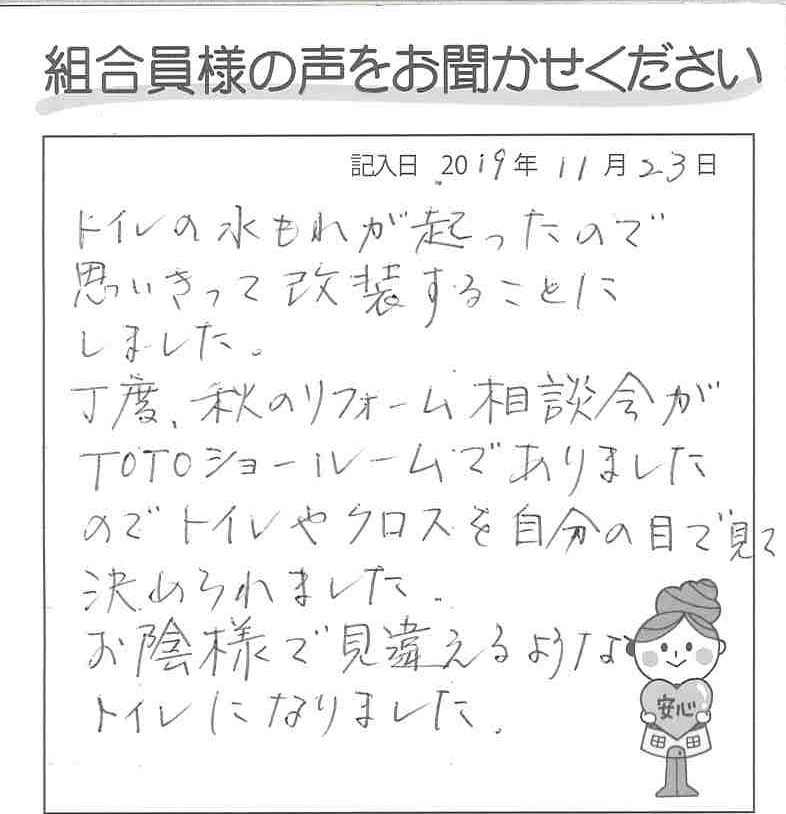 組合員様の声をお聞かせください
記入日 2019年 11月 23日
トイレの水もれが起ったので
思いきって改装することに
しました。
丁度、秋のリフォーム相談会が
TOTOショールームでありました
のでトイレやクロスを自分の目で見て
決められました。
お陰様で見違えるような
トイレになりました。
安心